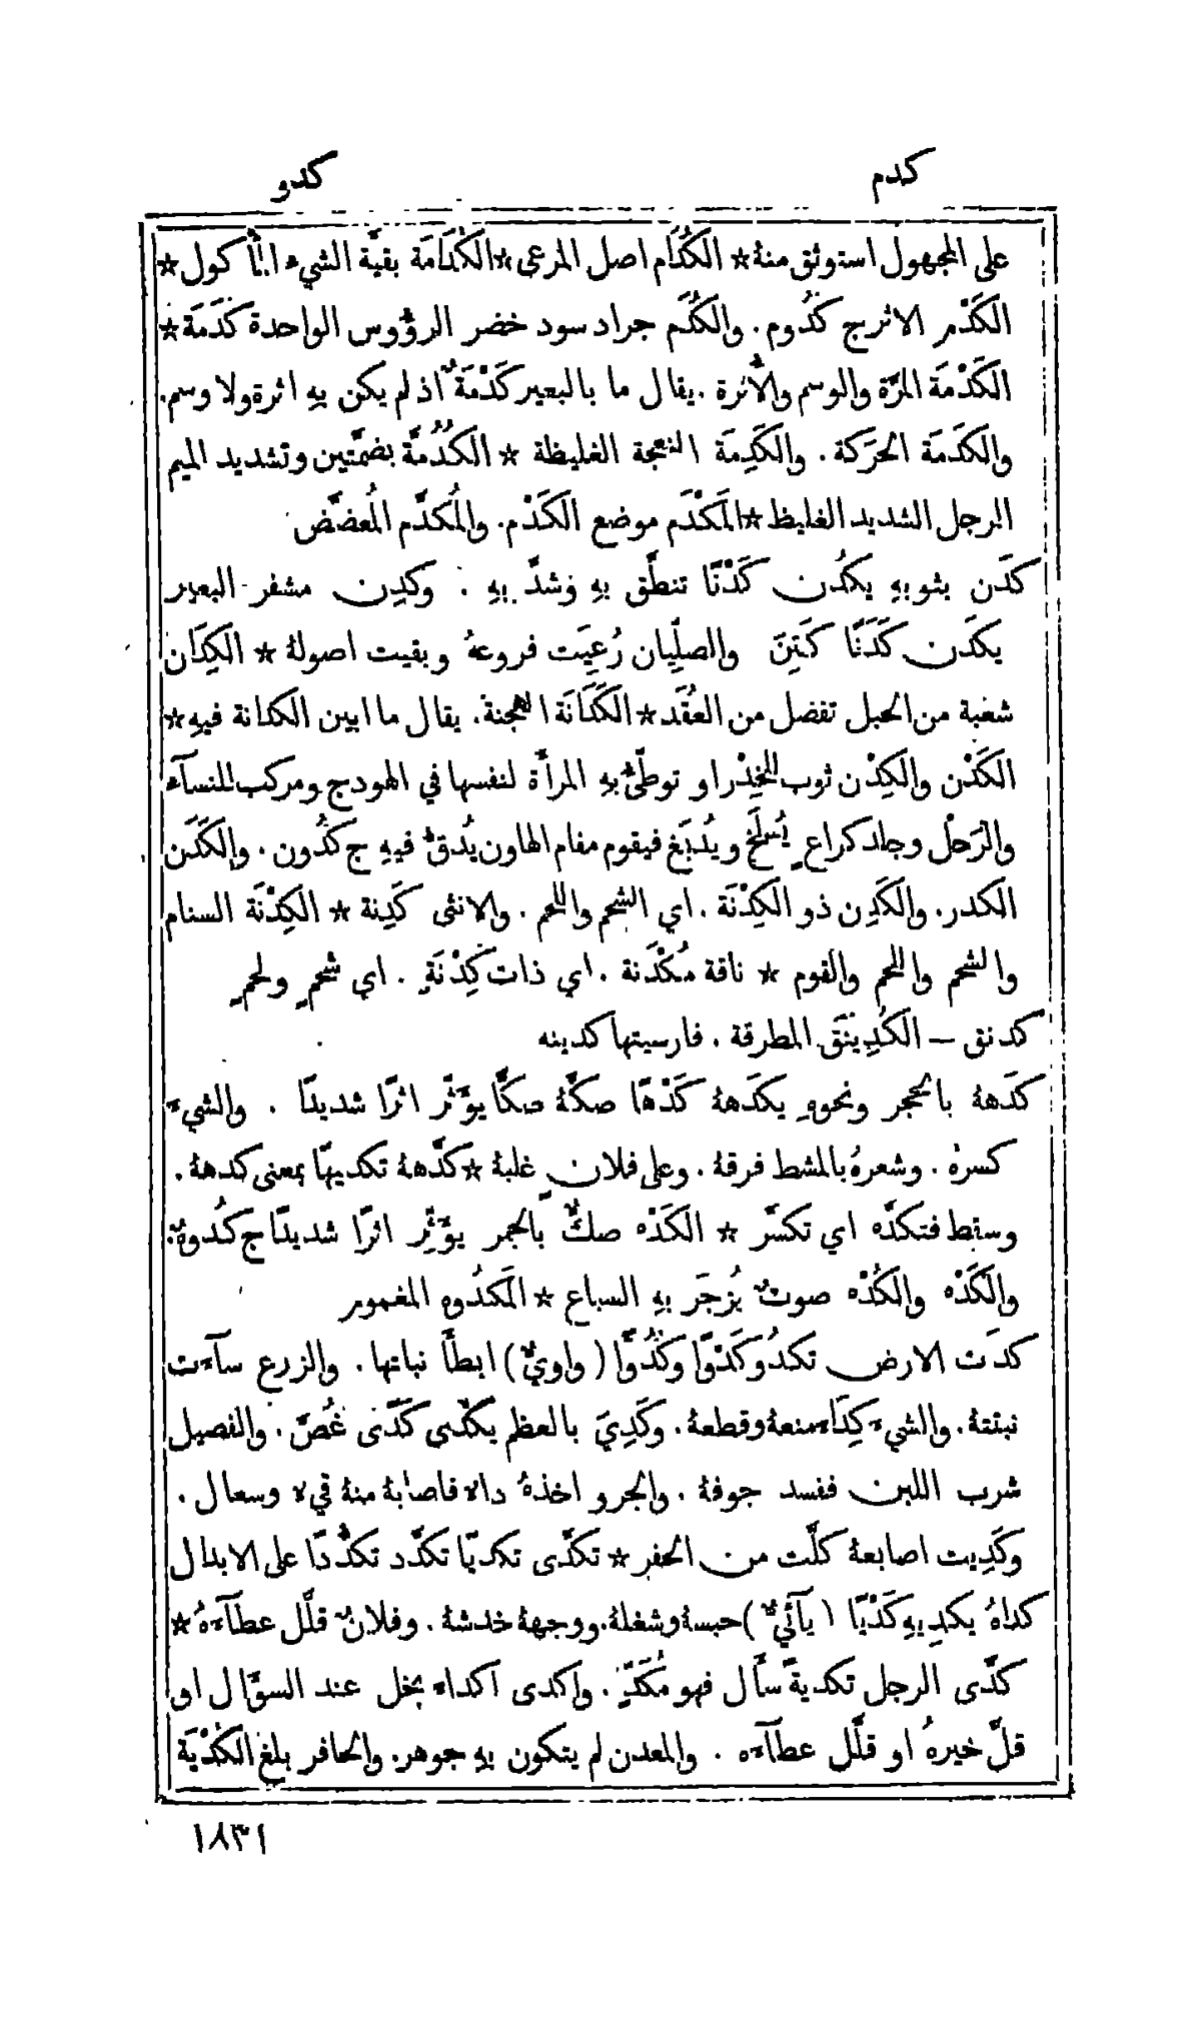 كدم
كدو
على المجهول استوثق منهُ * الكُدَام اصل المرعى * الكُدَامَة بقيَّة الشيء المأكول *
الكَدْم الاثر ج كُدُوم . والكُدَم جراد سود خضر الرؤُوس الواحدة كُدَمَة *
الكَدْمَة المرَّة والوسم والأَثرة . يقال ما بالبعير كَدْمَةٌ اذ لم يكن بهِ اثرة ولا وسم .
والكَدَمَة الحَرَكة . والكَدِمَة النعجة الغليظة * الكُدُمَّة بضمَّتين وتشديد الميم
الرجل الشديد الغليظ * المَكْدَم موضع الكَدْم . والمُكدَّم المُعضَّض
كدَن بثوبهِ يكدُن كَدْنًا تنطَّق بهِ وشدَّ بهِ . وكدِن مشفر البعير
يكدَن كَدَنًا كَتِنَ والصلِّيان رُعِيَت فروعهُ وبقيت اصولهُ * الكِدَان
شعبة من الحبل تفضل من العُقَد * الكَدَانَة الهجنة . يقال ما ابين الكدانة فيهِ *
الكَدْن والكِدْن ثوب للخِدْر او توطِّئُ بهِ المرأَة لنفسها في الهودج ومركب للنسآء
والرَحْل وجلد كراعٍ يُسلَخ ويُدبَغ فيقوم مقام الهاون يُدقُّ فيهِ ج كُدُون . والكَدَن
الكدر . والكَدِن ذو الكِدْنَة . اي الشحم واللحم . والانثى كَدِنة * الكِدْنَة السنام
والشحم واللحم والقوم * ناقة مُكْدَنة . اي ذات كِدْنَةٍ . اي شحمٍ ولحمٍ
كدنق – الكُدِينَق المطرقة . فارسيتها كدينه
كدَههُ بالحجر ونحوهِ يكدَههُ كَدْهًا صكَّهُ صكًّا يؤَثّر اثرًا شديدًا . والشيءَ
كسرهُ . وشعرهُ بالمشط فرقهُ . وعلى فلانٍ غلبهُ * كدَّههُ تكديهًا بمعنى كدههُ .
وسقط فتكدَّه اي تكسَّر * الكَدْه صكٌّ بالحجر يؤَثِّر اثرًا شديدًا ج كُدوهٌ .
والكَدْه والكُدْه صوتٌ يُزجَر بهِ السباع * المَكدُوه المغمور
كدَت الارض تكدُو كَدْوًا وكُدُوًّا (واويٌّ) ابطأَ نباتها . والزرع سآءت
نبتتهُ . والشيءَ كِدَاءً منعهُ وقطعهُ . وكَدِيَ بالعظم يكدَى كَدًى غُصَّ . والفصيل
شرب اللبن ففسد جوفهُ . والجرو اخذهُ داء فاصابهُ منهُ قيء وسعال .
وكَدِيت اصابعهُ كلَّت من الحفر * تكدَّى تكديًّا تكدَّد تكدُّدًا على الابدال
كداهُ يكدِيهِ كَدْيًا (يآئيٌّ) حبسهُ وشغلهُ . ووجههُ خدشهُ . وفلانٌ قلَّل عطآءَهُ *
كدَّى الرجل تكديةً سأَل فهو مُكَدٍّ . واكدى اكداء بخل عند السؤَال او
قلَّ خيرهُ او قلَّل عطآءه . والمعدن لم يتكون بهِ جوهر . والحافر بلغ الكُدْيَة
١٨٣١